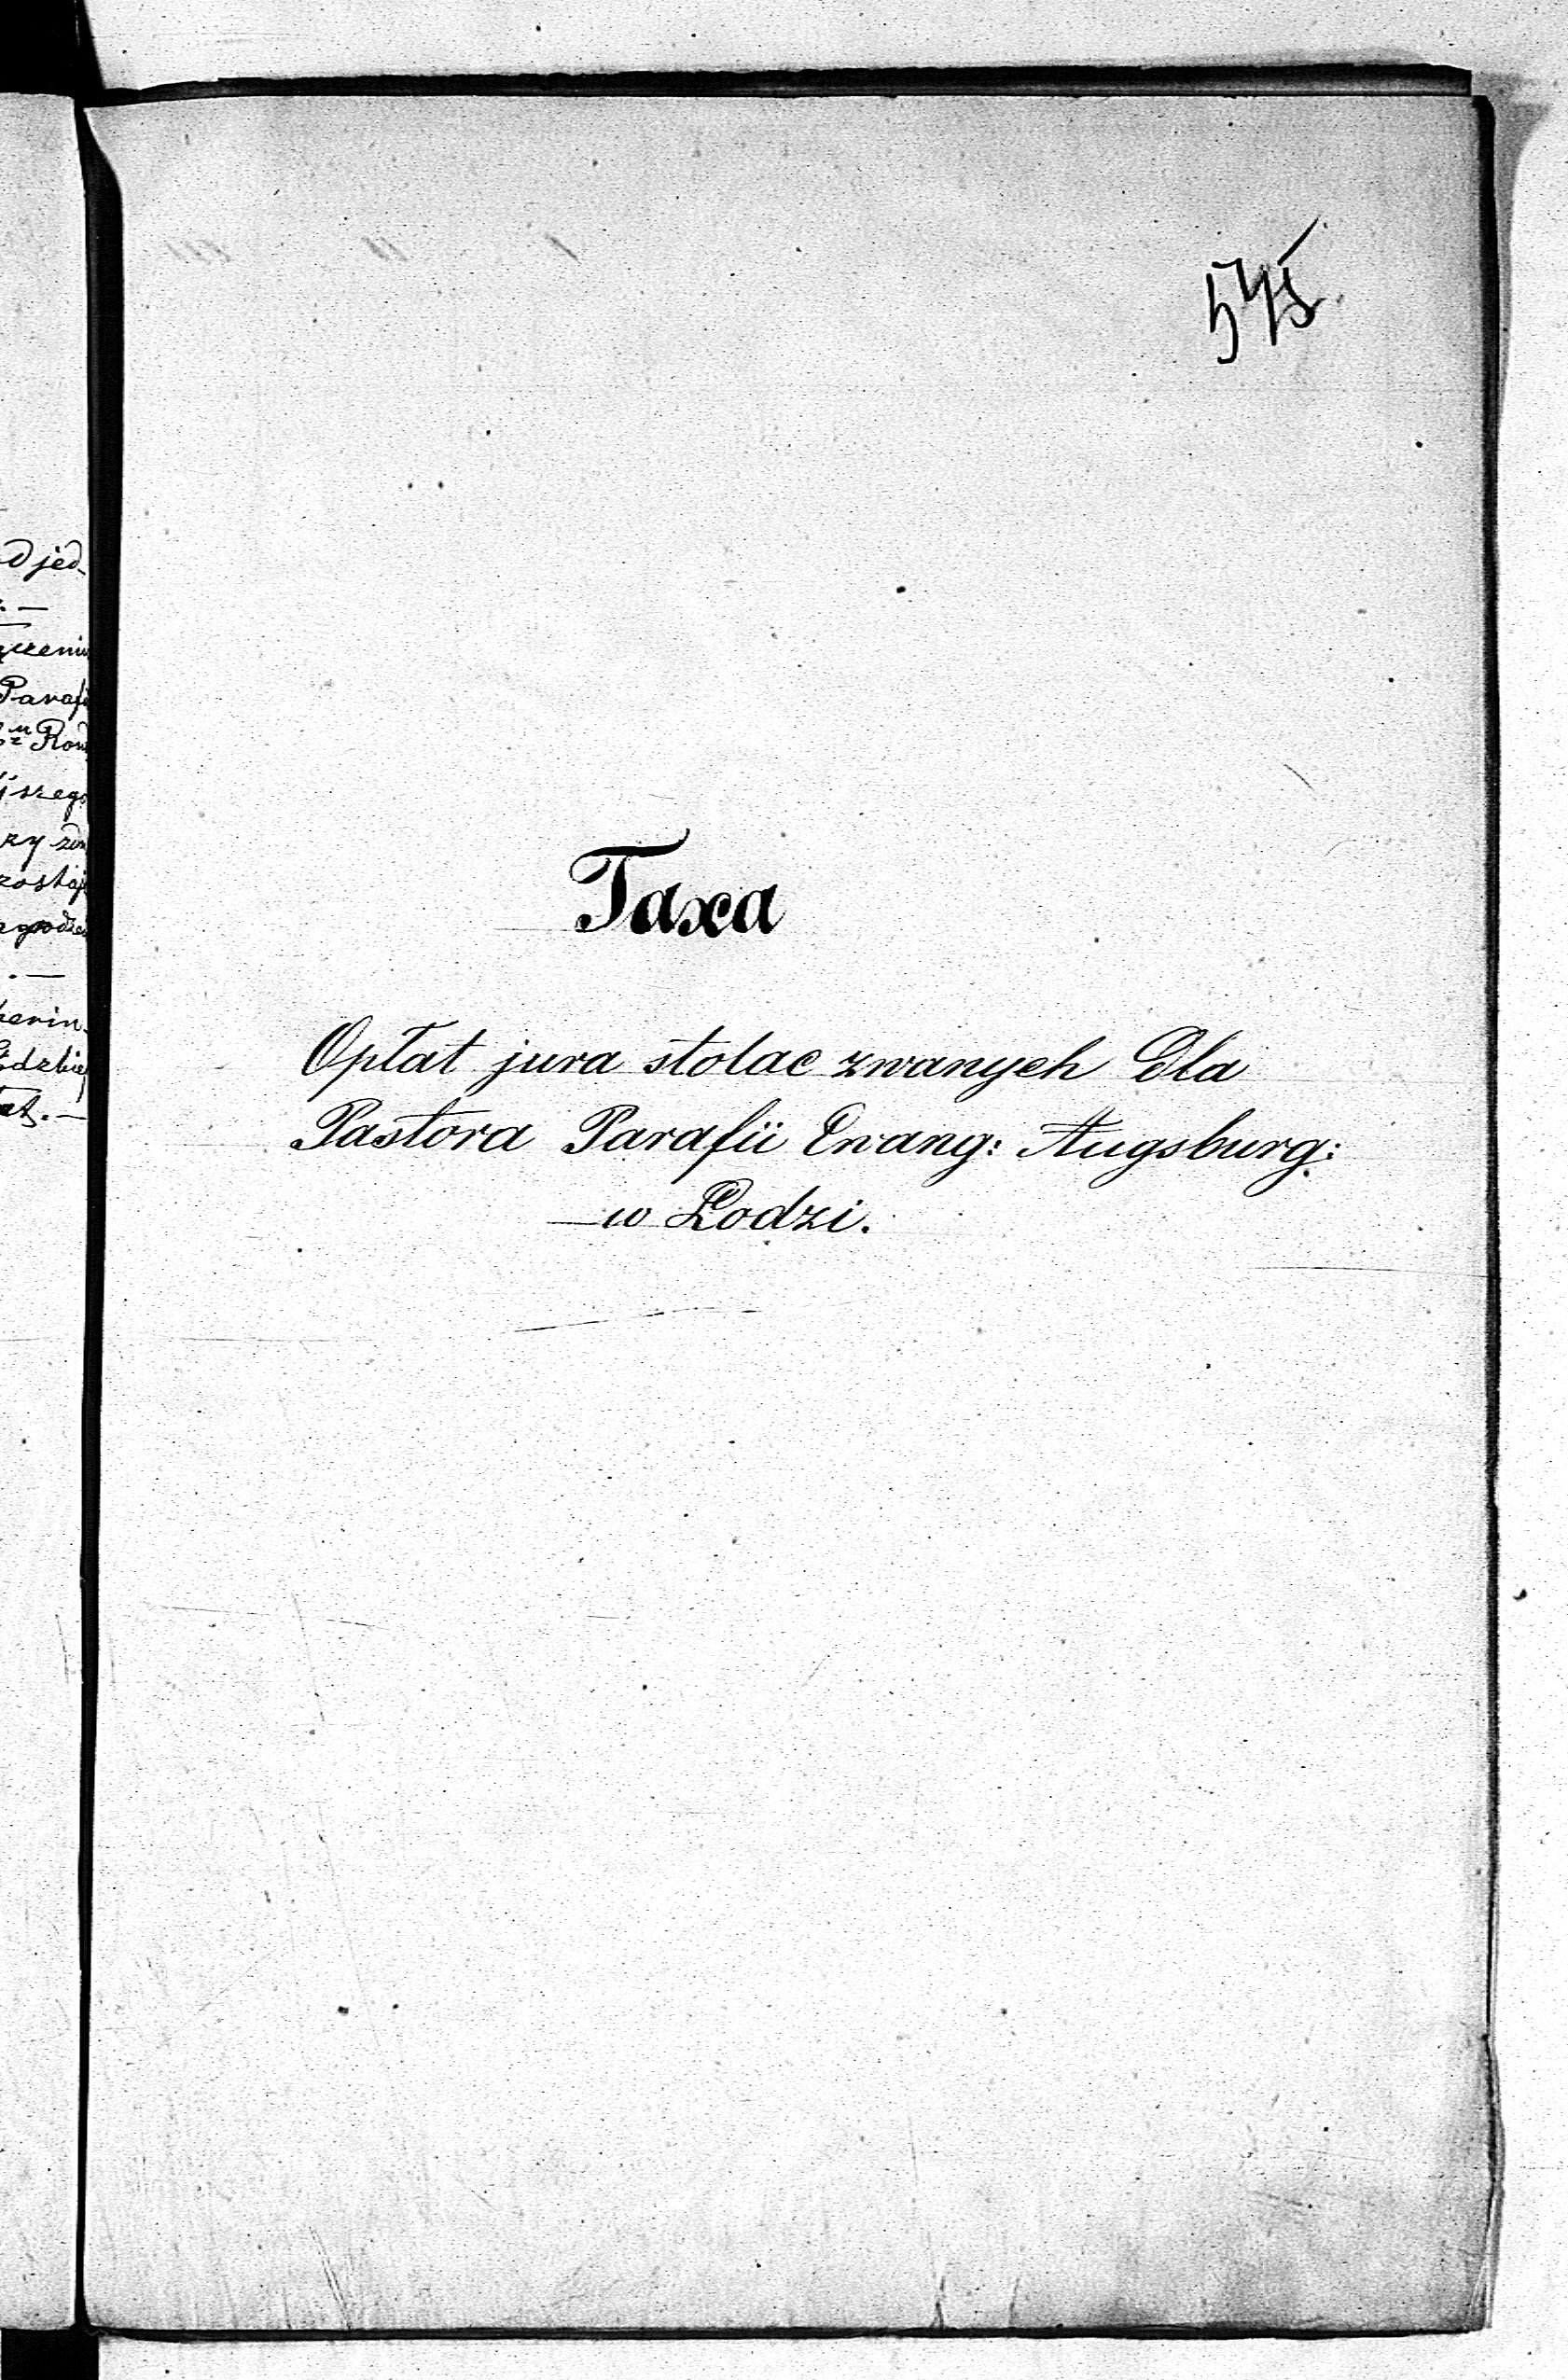 545
Taxa
Opłat jura stolae zwanych dla
Pastora Parafii Ewang: Augsburg:
w Łodzi.
jed-
Parafi